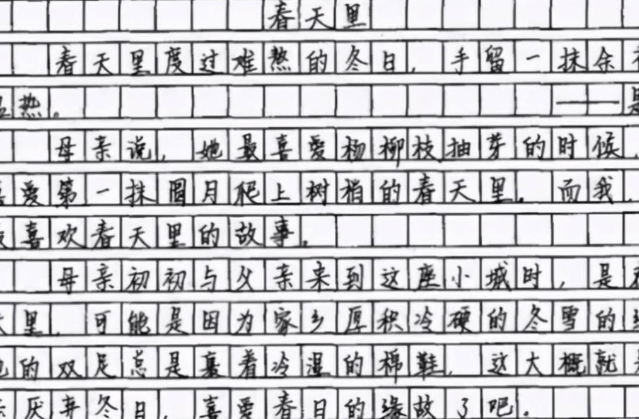 春天里
春天里度过难熬的冬日，手留一抹余
热。——
母亲说，她最喜爱杨柳枝抽芽的时候，
爱第一抹圆月爬上树梢的春天里。而我，
喜欢春天里的故事。
母亲初初与父亲来到这座小城时，是
里，可能是因为家乡厚积冷硬的冬雪的
的双足总是裹着冷湿的棉鞋，这大概就
厌弃冬日，喜爱春日的缘故了吧。